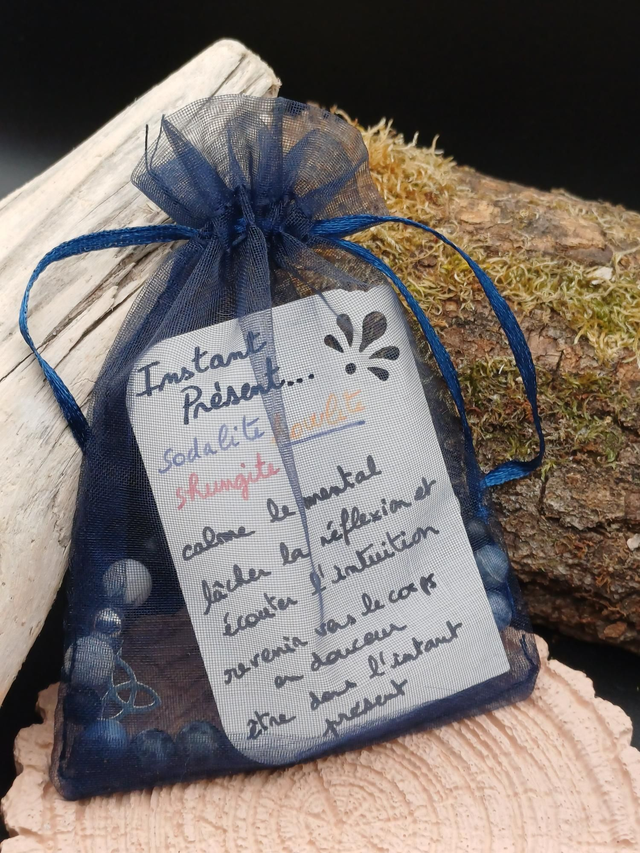 Instant
Présent...
Sodalite howlite
shungite
calme le mental
lâcher la réflexion et
écouter l'intuition
revenir vers le corps
en douceur
être dans l'instant
présent